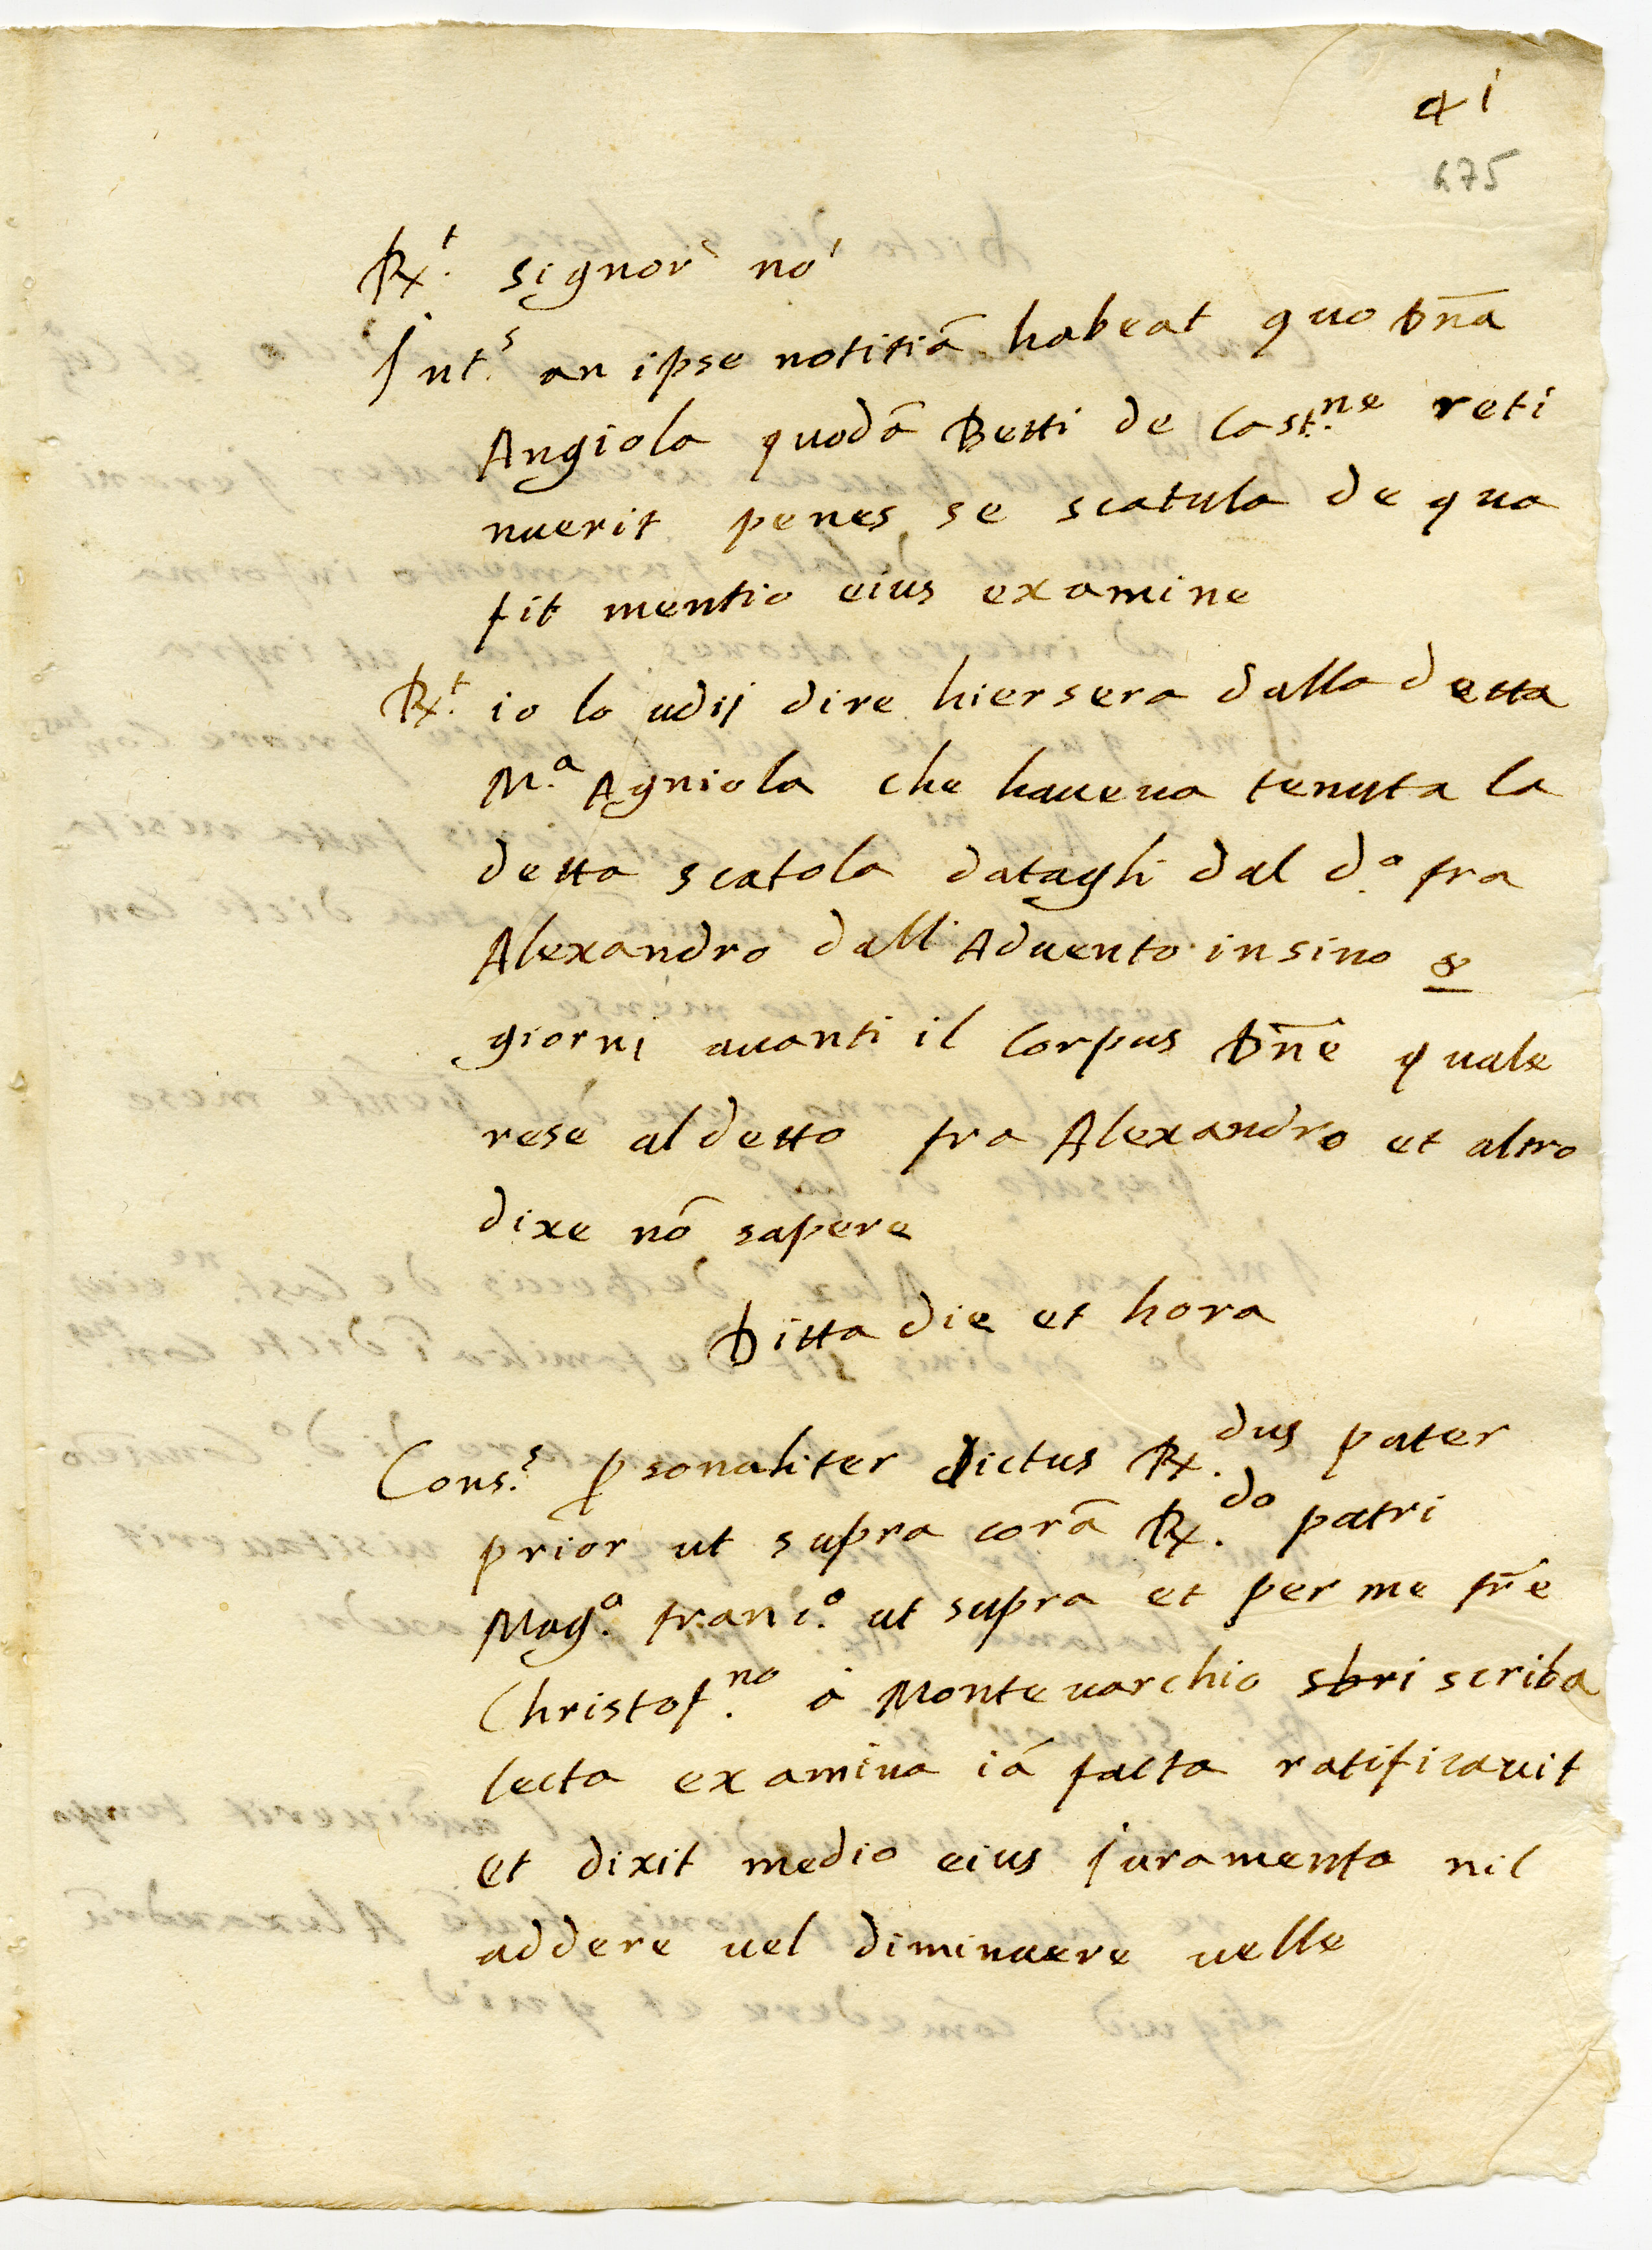 41
675
R.t signor no
Int.s an ipse notitiā habeat quo Dn̄a
Angiola quodā Betti de Cast.ne reti
nuerit penes se scatula de qua
fit mentio eius examine
R.t io lo udij dire hiersera dalla detta
M.a Agniola che haueua tenuta la
detta scatola datagli dal d.o fra
Alexandro dall'Aduento insino 8
giorni auanti il Corpus Dn̄e quale
rese al detto fra Alexandro et altro
dixe nō sapere
Ditta die et hora
Cons.s psonaliter dictus R.dus pater
prior ut supra corā R.do patri
Mag.o franc.o ut supra et per me fr̄e
Christof.no à Monteuarchio sbri scriba
lecta examina iā facta ratificauit
et dixit medio eius juramento nil
addere uel diminuere uelle